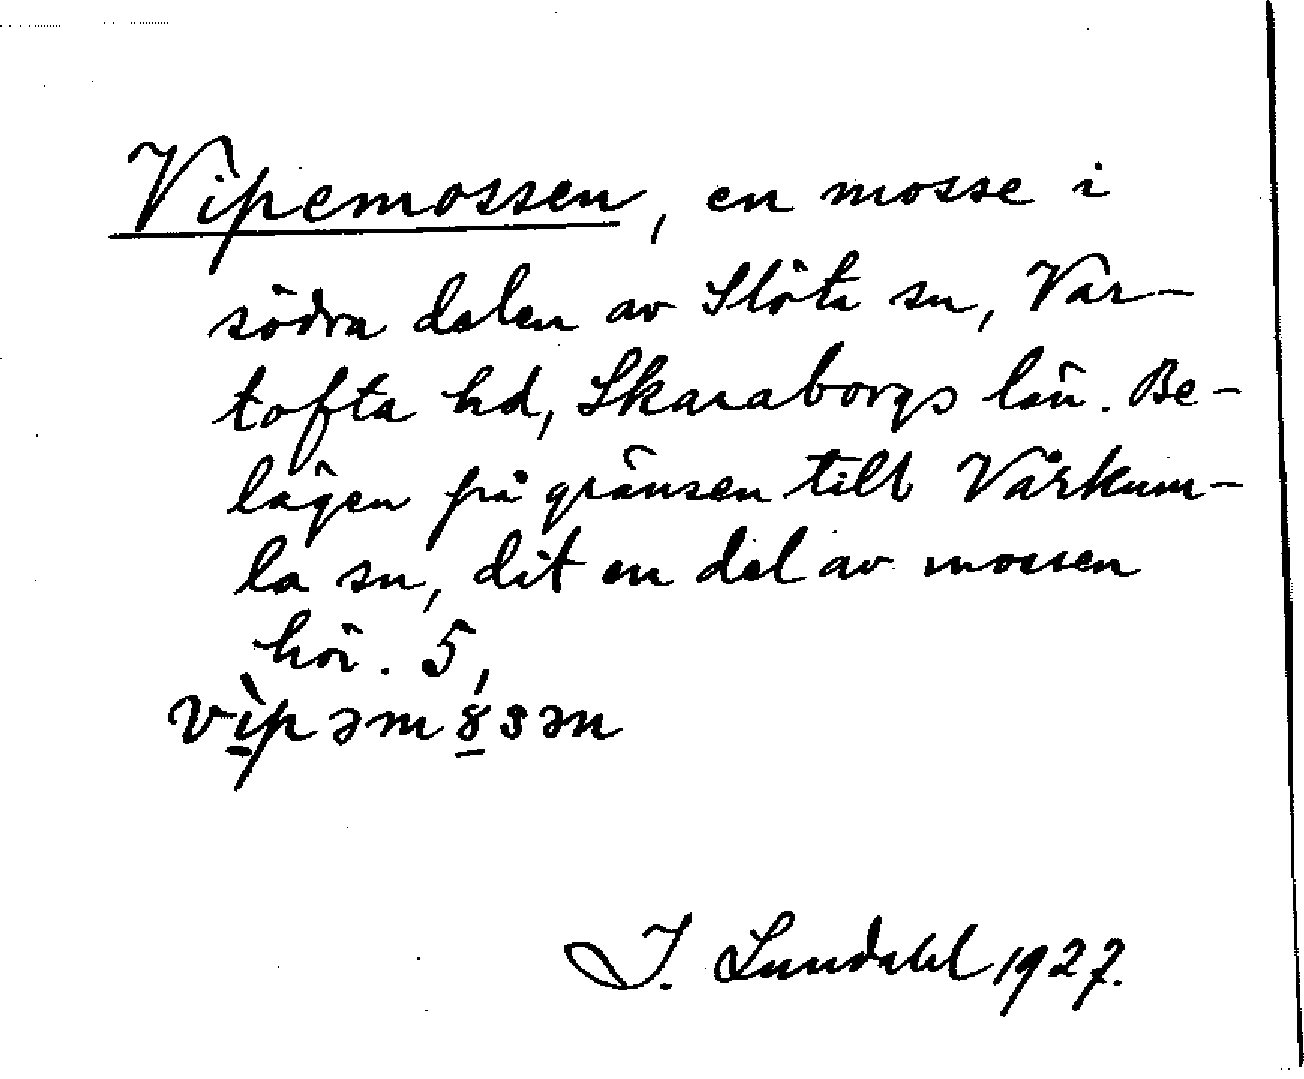 Vipemossen, en mosse i
södra delen av Slöta sn, Var-
tofta hd, Skaraborgs län. Be-
lägen på gränsen till Vårkum-
la sn, dit en del av mossen
hör. 5,
vìpəm8sən
I. Lundahl 1927.